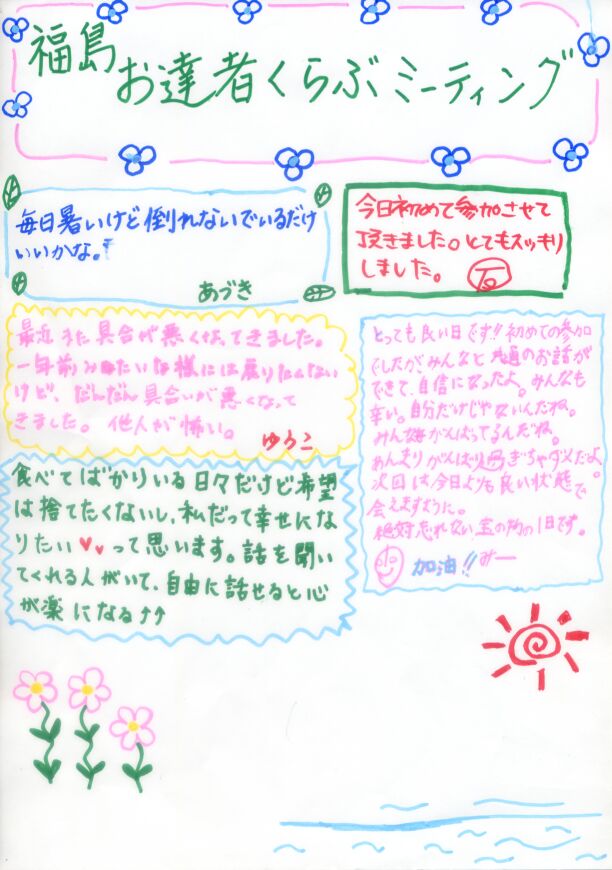 福島
お達者くらぶミーティング
毎日暑いけど倒れないでいるだけ
いいかな。
あづき
今日初めて参加させて
頂きました。とてもスッキリ
しました。
最近また具合が悪くなってきました。
一年前みたいな様には戻りたくない
けど、だんだん具合いが悪くなって
きました。他人が怖い。
ゆうこ
食べてばかりいる日々だけど希望
は捨てたくないし、私だって幸せにな
りたい♥♥って思います。話を聞い
てくれる人がいて、自由に話せると心
が楽になる↑↑
とっても良い日です!!初めての参加
でしたが、みんなと共通のお話が
できて、自信になったよ。みんなも
辛い。自分だけじゃないんだね。
みんながんばってるんだね。
あんまりがんばり過ぎちゃダメだよ。
次回は今日よりも良い状態で
会えますように。
絶対忘れない宝の物の1日です。
加油!!みー